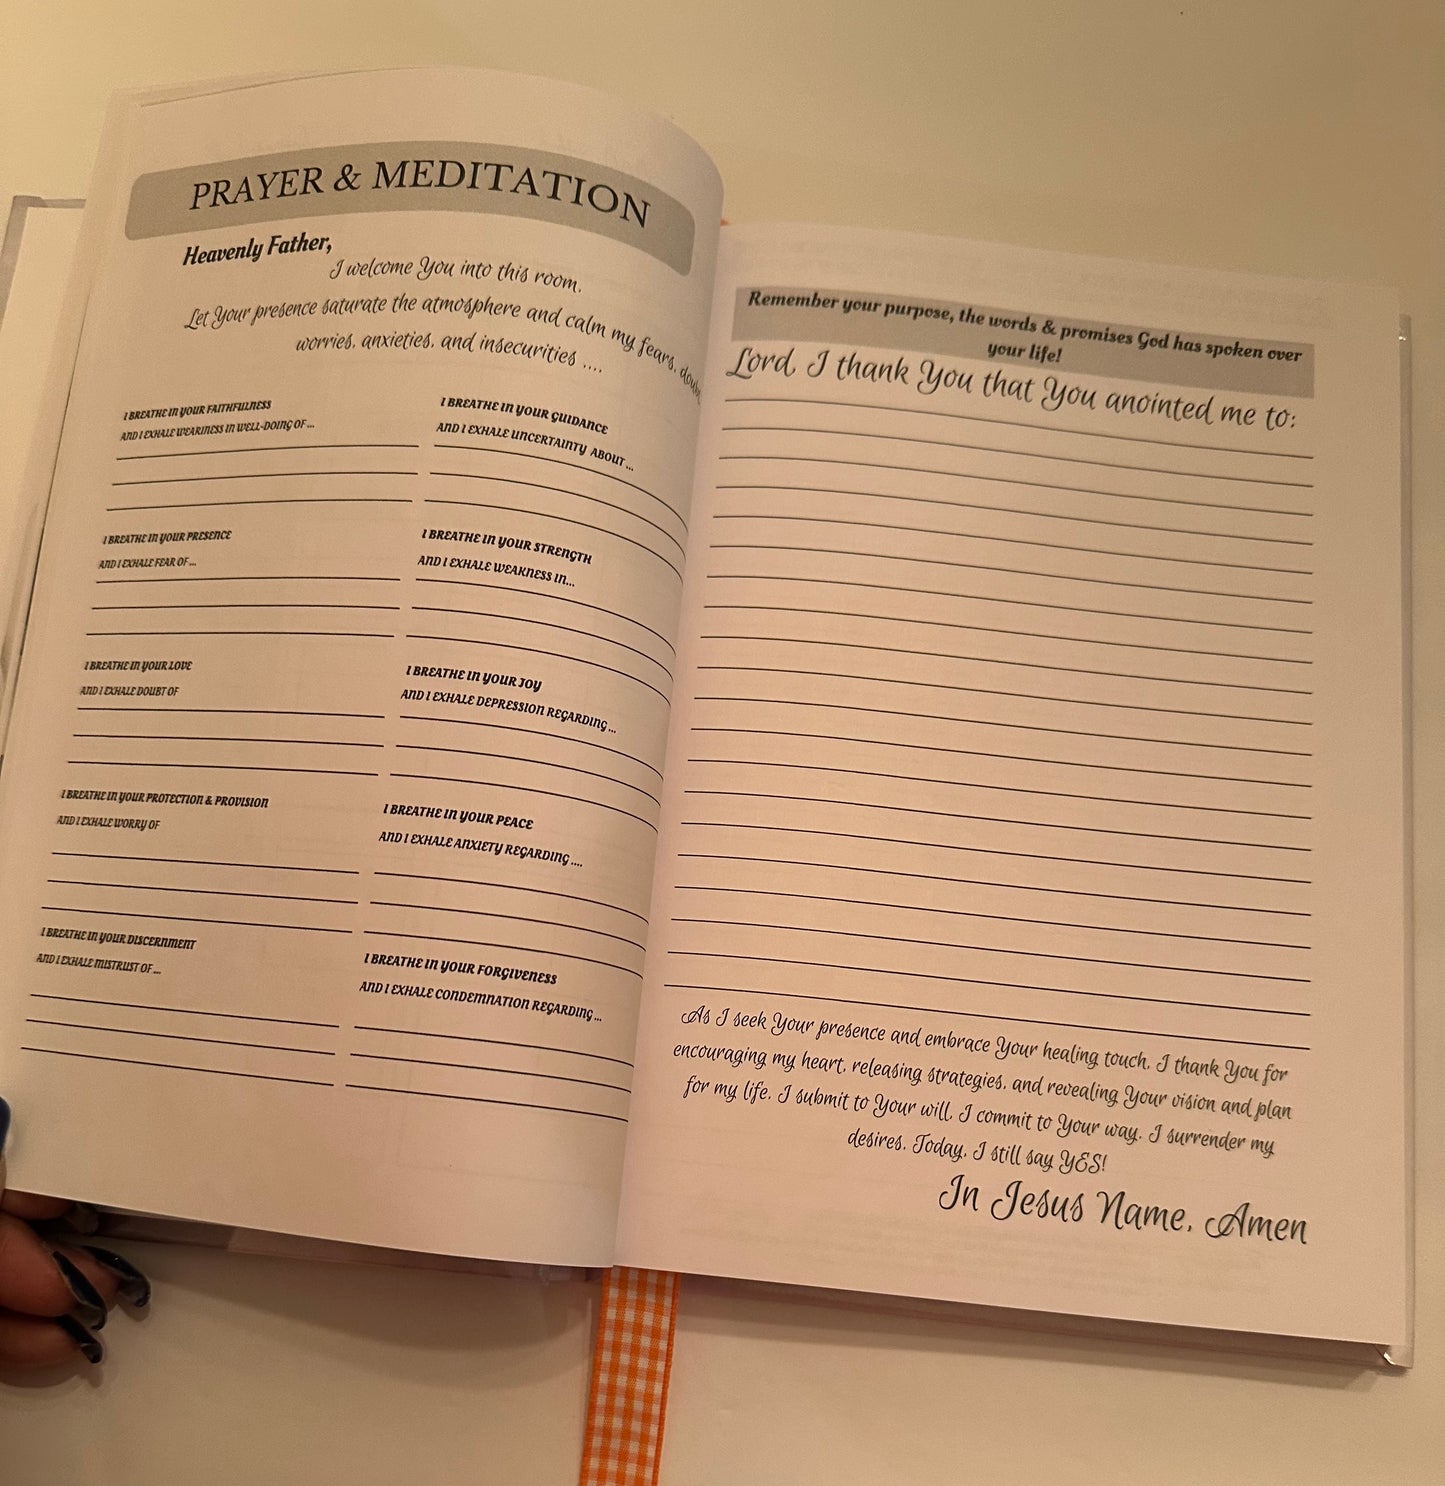 PRAYER & MEDITATION
Heavenly Father,
I welcome You into this room.
Let Your presence saturate the atmosphere and calm my fears, doubt,
worries, anxieties, and insecurities ....
I BREATHE IN YOUR FAITHFULNESS
AND I EXHALE WEARINESS IN WELL-DOING OF ...
I BREATHE IN YOUR PRESENCE
AND I EXHALE FEAR OF ...
I BREATHE IN YOUR LOVE
AND I EXHALE DOUBT OF
I BREATHE IN YOUR PROTECTION & PROVISION
AND I EXHALE WORRY OF
I BREATHE IN YOUR DISCERNMENT
AND I EXHALE MISTRUST OF ...
I BREATHE IN YOUR GUIDANCE
AND I EXHALE UNCERTAINTY ABOUT ...
I BREATHE IN YOUR STRENGTH
AND I EXHALE WEAKNESS IN...
I BREATHE IN YOUR JOY
AND I EXHALE DEPRESSION REGARDING ...
I BREATHE IN YOUR PEACE
AND I EXHALE ANXIETY REGARDING ....
I BREATHE IN YOUR FORGIVENESS
AND I EXHALE CONDEMNATION REGARDING ...
Remember your purpose, the words & promises God has spoken over
your life!
Lord, I thank You that You anointed me to:
As I seek Your presence and embrace Your healing touch, I thank You for
encouraging my heart, releasing strategies, and revealing Your vision and plan
for my life. I submit to Your will, I commit to Your way. I surrender my
desires. Today, I still say YES!
In Jesus Name, Amen